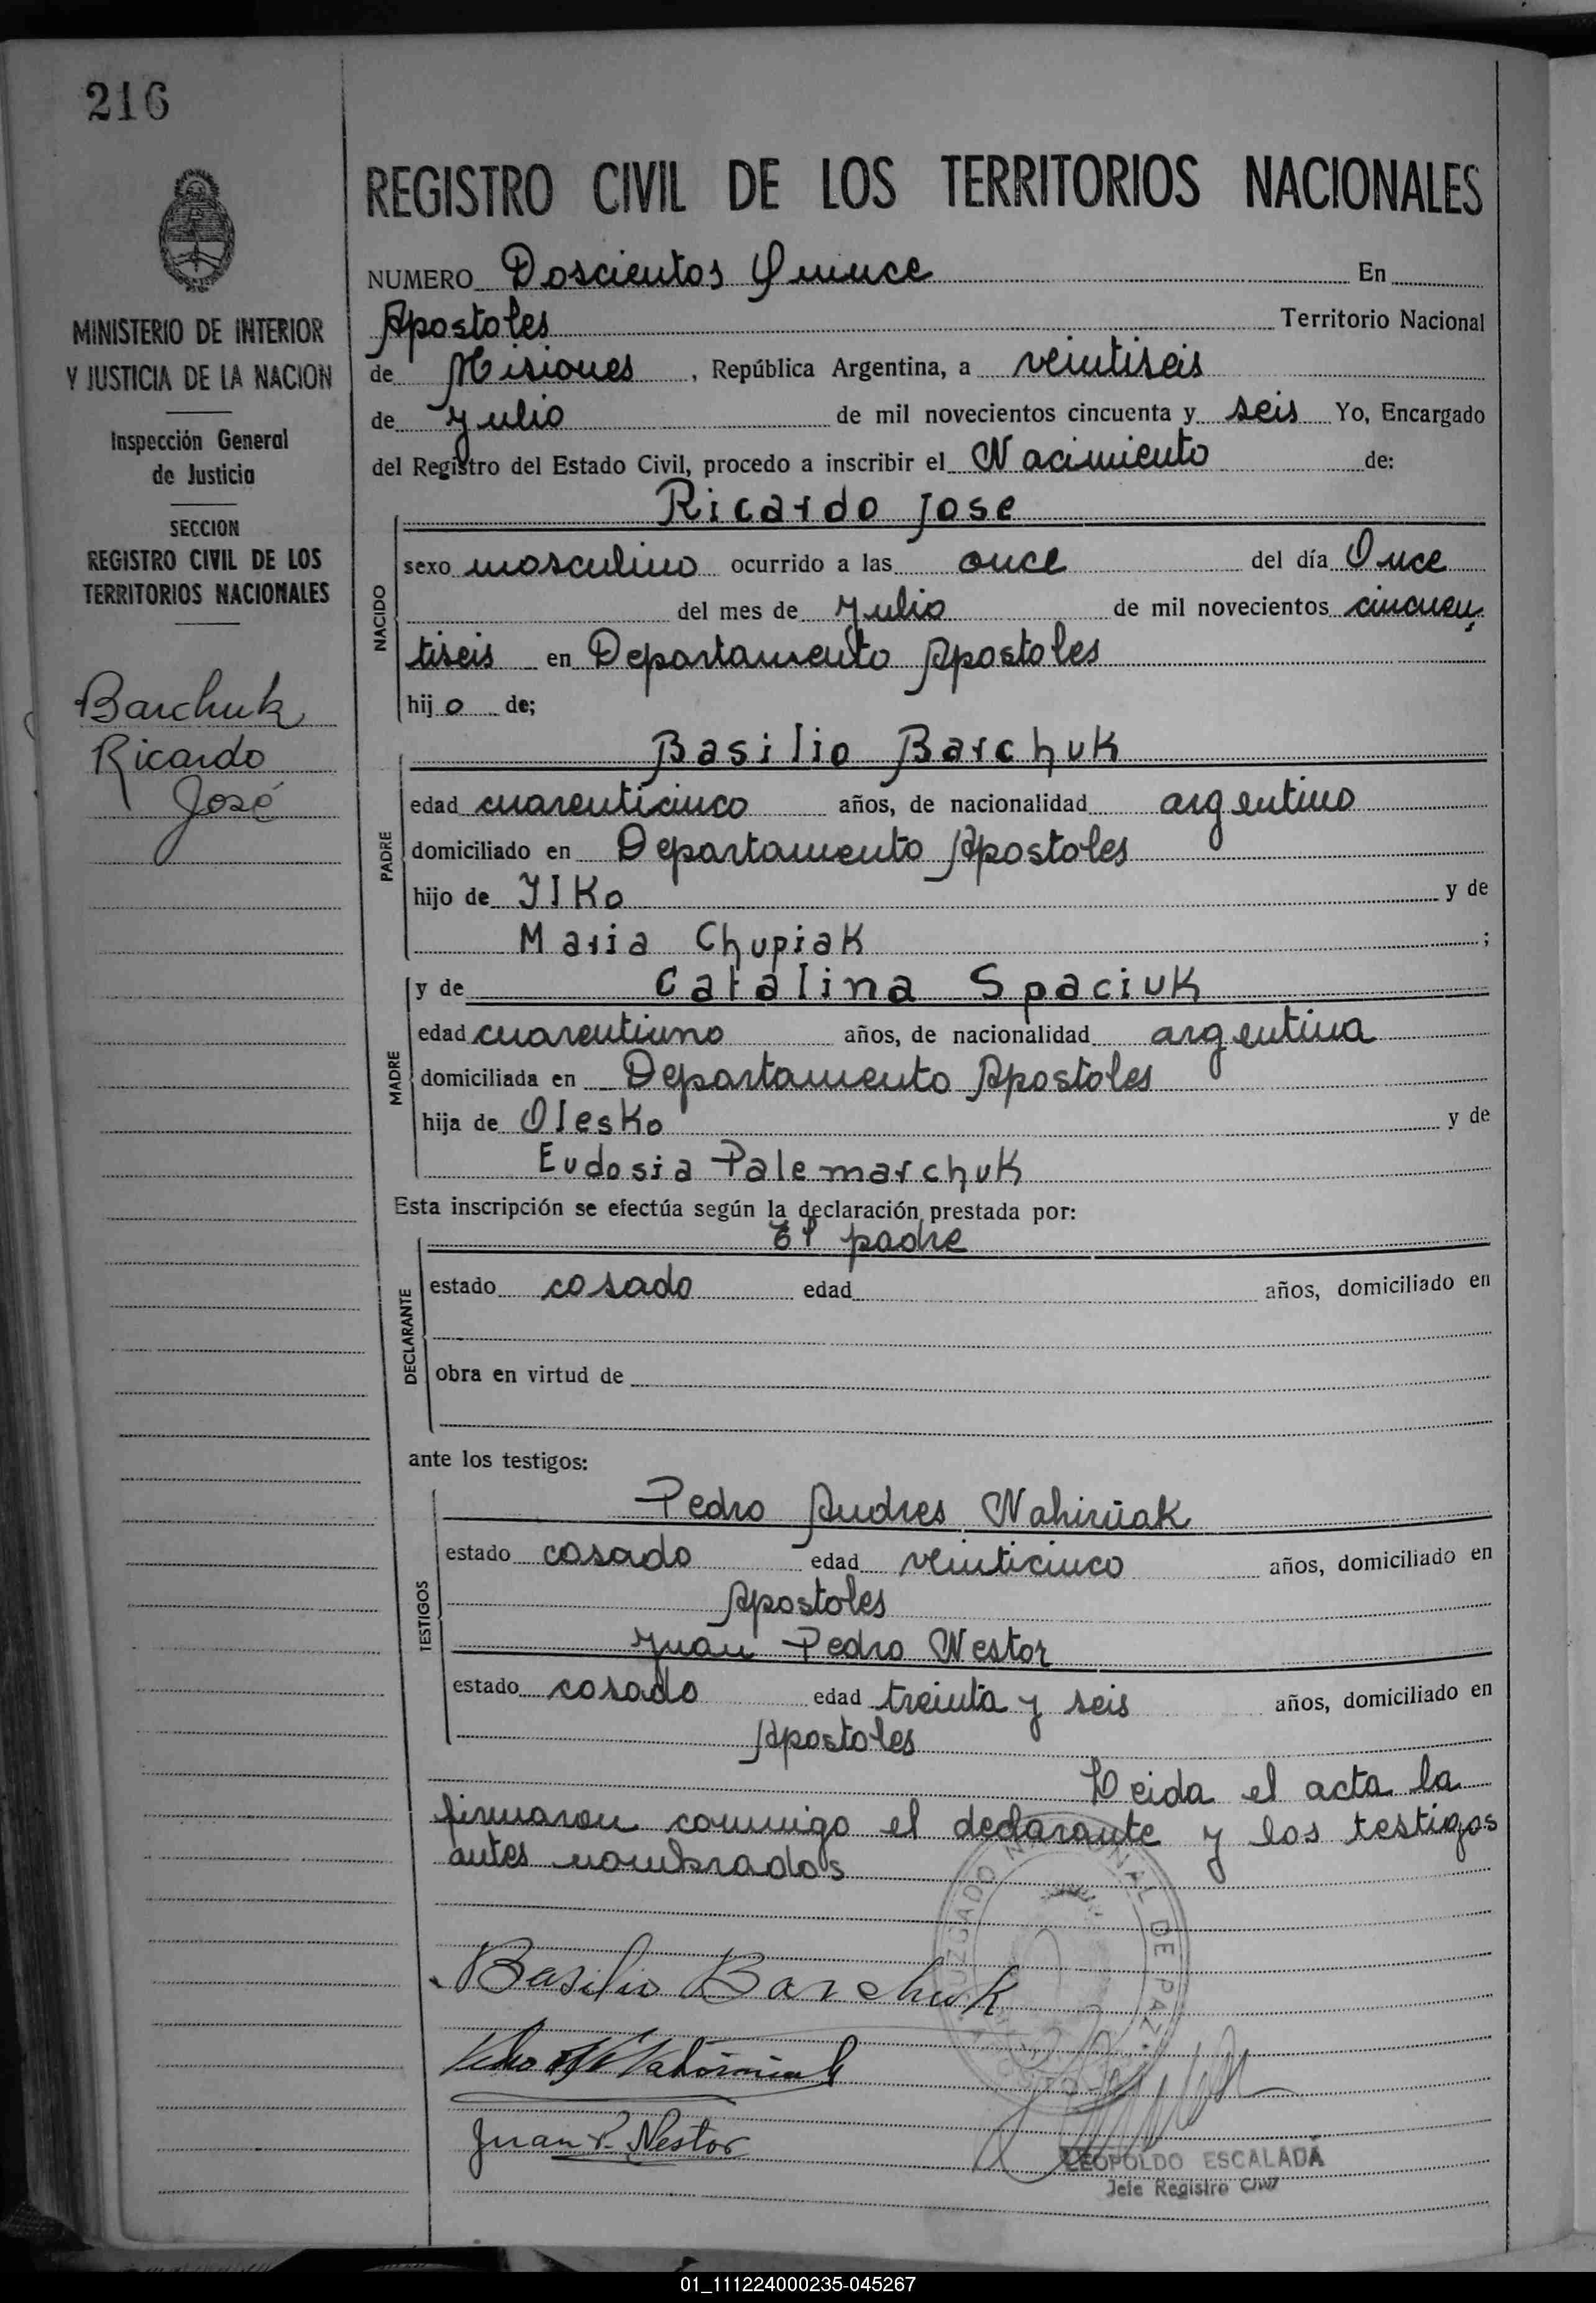 216
REGISTRO CIVIL DE LOS TERRITORIOS NACIONALES
MINISTERIO DE INTERIOR
Y JUSTICIA DE LA NACION
Inspección General
de Justicia
SECCION
REGISTRO CIVIL DE LOS
TERRITORIOS NACIONALES
Barchuk
Ricardo
José
NUMERO Doscientos Quince En
Apostoles Territorio Nacional
de Misiones, República Argentina, a veintiseis
de Julio de mil novecientos cincuenta y seis Yo, Encargado
del Registro del Estado Civil, procedo a inscribir el Nacimiento de:
NACIDO
Ricardo Jose
sexo masculino ocurrido a las once del día Once
del mes de Julio de mil novecientos cincuen
tiseis en Departamento Apostoles
hijo de;
PADRE
Basilio Barchuk
edad cuarenticinco años, de nacionalidad argentino
domiciliado en Departamento Apostoles
hijo de Ilko y de
Maria Chupiak ;
MADRE
y de Catalina Spaciuk
edad cuarentiuno años, de nacionalidad argentina
domiciliada en Departamento Apostoles
hija de Olesko y de
Eudosia Palemarchuk
Esta inscripción se efectúa según la declaración prestada por:
DECLARANTE
El padre
estado casado edad años, domiciliado en
obra en virtud de
ante los testigos:
TESTIGOS
Pedro Andres Nahirñak
estado casado edad veinticinco años, domiciliado en
Apostoles
Juan Pedro Nestor
estado casado edad treinta y seis años, domiciliado en
Apostoles
Leida el acta la
firmaron conmigo el declarante y los testigos
antes nombrados
JUZGADO NACIONAL DE PAZ
Basilio Barchuk
Juan P. Nestor
LEOPOLDO ESCALADA
Jefe Registro Civil
01_111224000235-045267